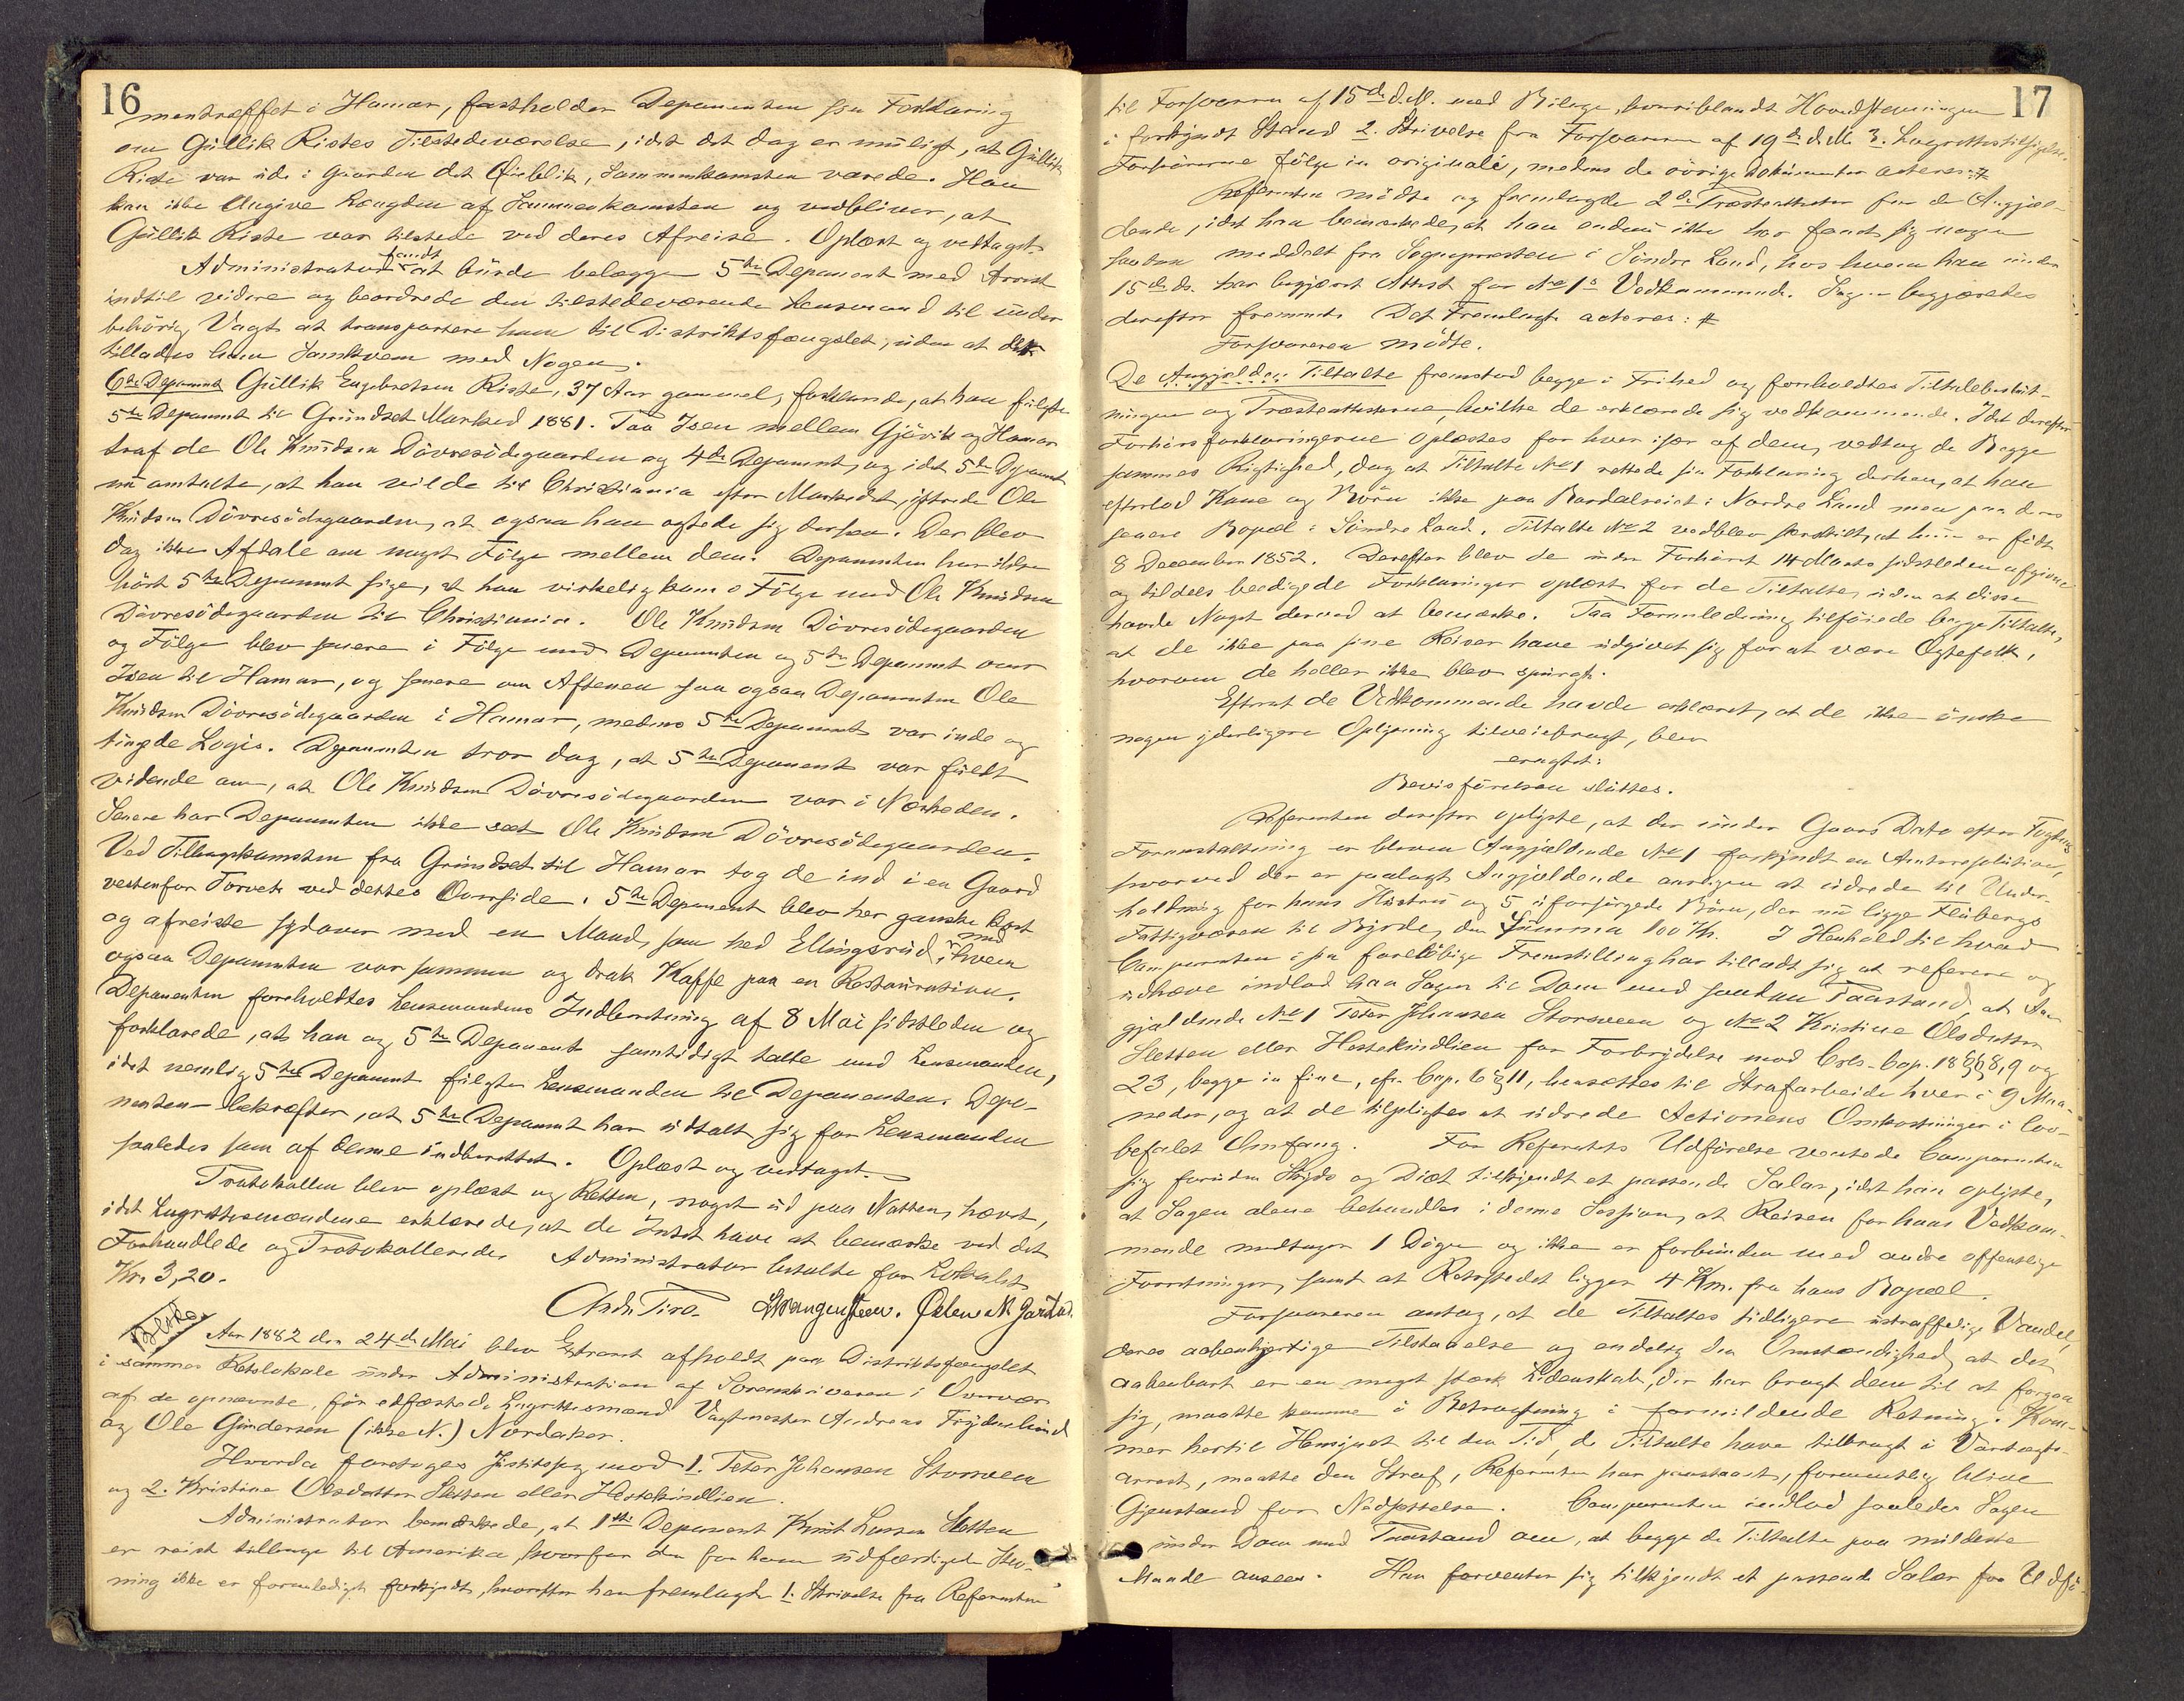 16
mentræffet i Hamar, fastholder Deponenten sin Forklaring
om Gullik Ristes Tilstedeværelse, idet det dog er muligt, at Gullik
Riste var ude i Gaarden det Øieblik, Sammenkomsten varede. Han
kan ikke Angive Længden af Sammenkomsten og vedbliver, at
Gullik Riste var tilstede ved deres Afreise. Oplæst og vedtaget.
Administrator fandt at burde belægge 5te Deponent med Arrest
indtil videre og beordrede den tilstedeværende Lensmand til under
behörig Vagt at transportere ham til Distriktsfængslet, uden at det
tillades ham Samkvem med Nogen.
6te Deponent Gullik Engebretsen Riste, 37 Aar gammel, forklarede, at han fulgte
5te Deponent til Grundset Marked 1881. Paa Isen mellem Gjövik og Hamar
traf de Ole Knudsen Dövresödegaarden og 4de Deponent, og idet 5te Deponent
nu omtalte, at han vilde til Christiania efter Markedet, yttrede Ole
Knudsen Dövresödegaarden, at ogsaa han agtede sig dersen. Der blev
dog ikke Aftale om noget Fölge mellem dem. Deponenten har ikke
hört 5te Deponent sige, at han virkelig kom i Fölge med Ole Knudsen
Dövresödegaarden til Christiania. Ole Knudsen Dövresödegaarden
og Fölge blev senere i Fölge med Deponenten og 5te Deponent over
Isen til Hamar, og senere om Aftenen saa ogsaa Deponenten Ole
Knudsen Dövresödegaarden i Hamar, medens 5te Deponent var inde og
tingede Logis. Deponenten tror dog, at 5te Deponent var fuldt
vidende om, at Ole Knudsen Dövresödegaarden var i Nærheden.
Senere har Deponenten ikke seet Ole Knudsen Dövresödegaarden.
Ved Tilbagekomsten fra Grundset til Hamar tog de ind i en Gaard
vestenfor Torvet ved dettes Overside. 5te Deponent blev her ganske kort
og afreiste sydover med en Mand, som hed Ellingsrud, med hvem
ogsaa Deponenten var sammen og drak Kaffe paa en Restauration.
Deponenten foreholdtes Lensmandens Indberetning af 8 Mai sidstleden og
forklarede, at han og 5te Deponent samtidigt talte med Lensmanden,
idet nemlig 5te Deponent fulgte Lensmanden til Deponenten. Depo-
nenten bekræfter, at 5te Deponent har udtalt sig for Lensmanden
saaledes som af denne indberettet. Oplæst og vedtaget.
Protokollen blev oplæst og Retten, noget ud paa Natten, hævet,
idet Lagrettesmændene erklærede, at de Intet have at bemærke ved det
Forhandlede og Protokollerede. Administrator betalte for Lokalet
Kr. 3,20.
Andr. Tiro. Wangensteen. Östen N. Garstad.
Aar 1882 den 24de Mai blev Extraret afholdt paa Distriktsfængslet
i sammes Retslokale under Administration af Sorenskriveren i Overvær
af de opnævnte, för edfæstede Lagrettesmænd Vagtmester Andreas Frydenlund
og Ole Gundersen (ikke N.) Nordaker.
Hvorda foretoges Justitssag mod 1. Peter Johansen Storsveen
og 2. Kristine Olsdatter Sletten eller Hestekindlien.
Administrator bemærkede, at 1ste Deponent Knut Larsen Sletten
er reist tilbage til Amerika, hvorfor den for ham udfærdigede Stev-
ning ikke er formeldigt forkyndt, hvorefter han fremlagde 1. Skrivelse fra Referenten
17
til Forsvaren af 15de d.M. med Bilage, hvoriblandt Hovedstevningen
i forkyndt Stand 2. Skrivelse fra Forsvaren af 19de d.M. 3. Lagrettestilsigelse.
Forhörerne fölge in originali, medens de övrige Dokumenter acteres: #
Referenten mödte og fremlagde 2de Præsteattester for de Angjæl-
dende, idet han bemærkede, at han endnu ikke har faaet sig nogen
saadan meddelt fra Sognepræsten i Söndre Land, hos hvem han under
15de ds. har begjært Attest for No 1s Vedkommende. Sagen begjæredes
derefter fremmet. Det Fremlagte acteres: #
Forsvareren mödte.
De Angjeldende Tiltalte fremstod begge i Frihed og foreholdtes Tiltalebeslut-
ningen og Præsteattesterne, hvilke de erklærede sig vedkommende. Idet derefter
Forhörsforklaringerne oplæstes for hver især af dem, vedtog de Begge
sammes Rigtighed, dog at Tiltalte No 1 rettede sin Forklaring derhen, at han
efterlod Kone og Börn ikke paa Bardalseiet i Nordre Land men paa deres
senere Bopæl i Söndre Land. Tiltalte No 2 vedblev særskilt, at hun er födt
8 December 1852. Derefter blev de under Forhöret 14 Marts sidstleden afgivne
og tildels beedigede Forklaringer oplæst for de Tiltalte, uden at disse
havde Noget dermed at bemærke. Paa Foranledning tilföiede begge Tiltalte,
at de ikke paa sine Reiser have udgivet sig for at være Ægtefolk,
hvorom de heller ikke blev spurgt.
Efterat de Vedkommende havde erklæret, at de ikke önske
nogen yderligere Oplysning tilveiebragt, blev
eragtet:
Bevisförelsen sluttes.
Referenten derefter oplyste, at der under Gaars Dato efter Fogdens
Foranstaltning er bleven Angjældende No 1 forkyndt en Amtsresolution,
hvorved der er paalagt Angjældende aarligen at udrede til Under-
holdning for hans Hustru og 5 uforsörgede Börn, der nu ligge Flubergs
Fattigvæsen til Byrde, den Summa 100 Kr. I Henhold til hvad
Comparenten i sin foreløbige Fremstilling har tilladt sig at referere og
udhæve indlod han Sagen til Dom med saadan Paastand, at An-
gjældende No 1 Peter Johansen Storsveen og No 2 Kristine Olsdatter
Sletten eller Hestekindlien for Forbrydelse mod Crls. Cap. 18 §§ 8, 9 og
23, begge in fine, cfr. Cap. 6 § 11, hensættes til Strafarbeide hver i 9 Maa-
neder, og at de tilpligtes at udrede Actionens Omkostninger i lov-
befalet Omfang. For Referatets Udförelse ventede Comparenten
sig foruden Skyds og Diæt tilkjendt et passende Salær, idet han oplyste,
at Sagen alene behandles i denne Session, at Reisen for hans Vedkom-
mende medtager 1 Dögn og ikke er forbunden med andre offentlige
Forretninger, samt at Retsstedet ligger 4 Km. fra hans Bopæl.
Forsvareren antog, at de Tiltaltes tidligere ustraffelige Vandel,
deres aabenhjertige Tilstaaelse og endelig den Omstændighed, at det
aabenbart er en meget stærk Lidenskab, der har bragt dem til at forgaa
sig, maatte komme i Betragtning i formildende Retning. Kom-
mer hertil Hensynet til den Tid, de Tiltalte have tilbragt i Varetægts-
arrest, maatte den Straf, Referenten har paastaaet, formentlig blive
Gjenstand for Nedsættelse. Comparenten indlod saaledes Sagen
under Dom med Paastand om, at begge de Tiltalte paa mildeste
Maade ansees. Han forventer sig tilkjendt et passende Salær for Udfö-